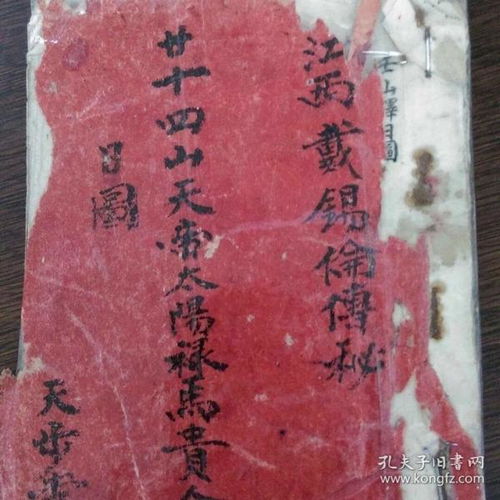 山擇日圖
江西戴錫倫傳秘
廿十四山天帝太陽祿馬貴
日圖
天帝
孔夫子旧书网
www.kongfz.com